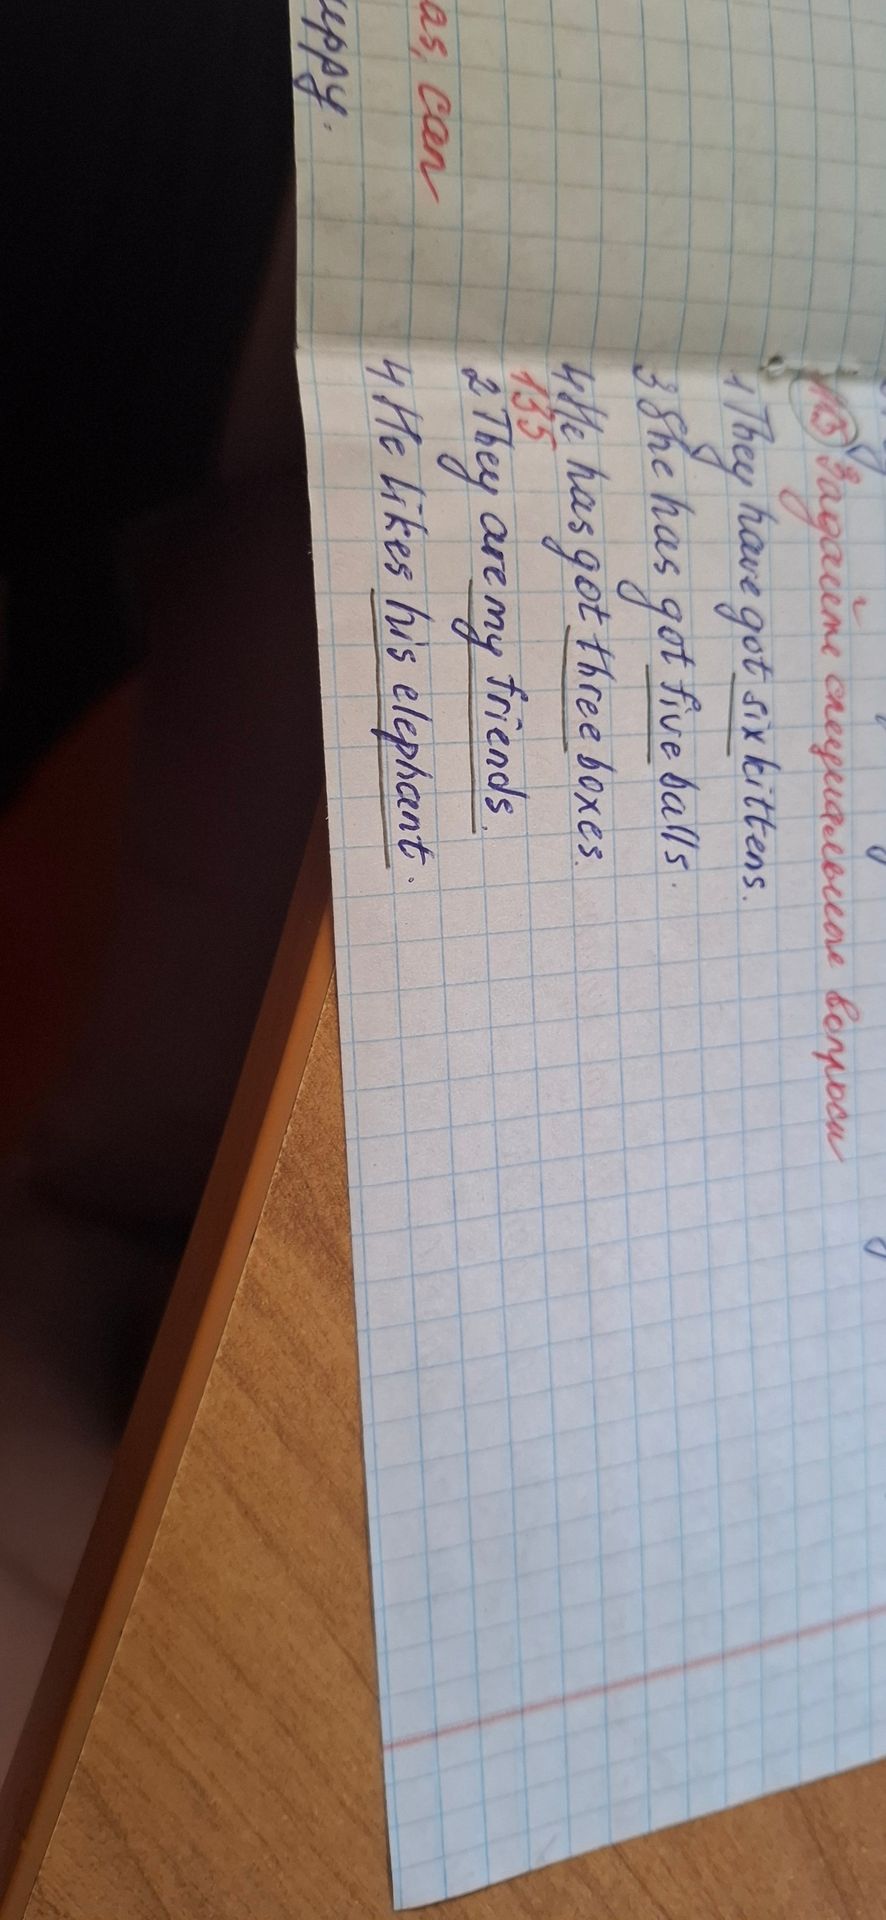 as, can
uppy.
Задайте специальные вопросы
1 They have got six kittens.
3 She has got five balls.
4 He has got three boxes.
135
2 They are my friends.
4 He likes his elephant.